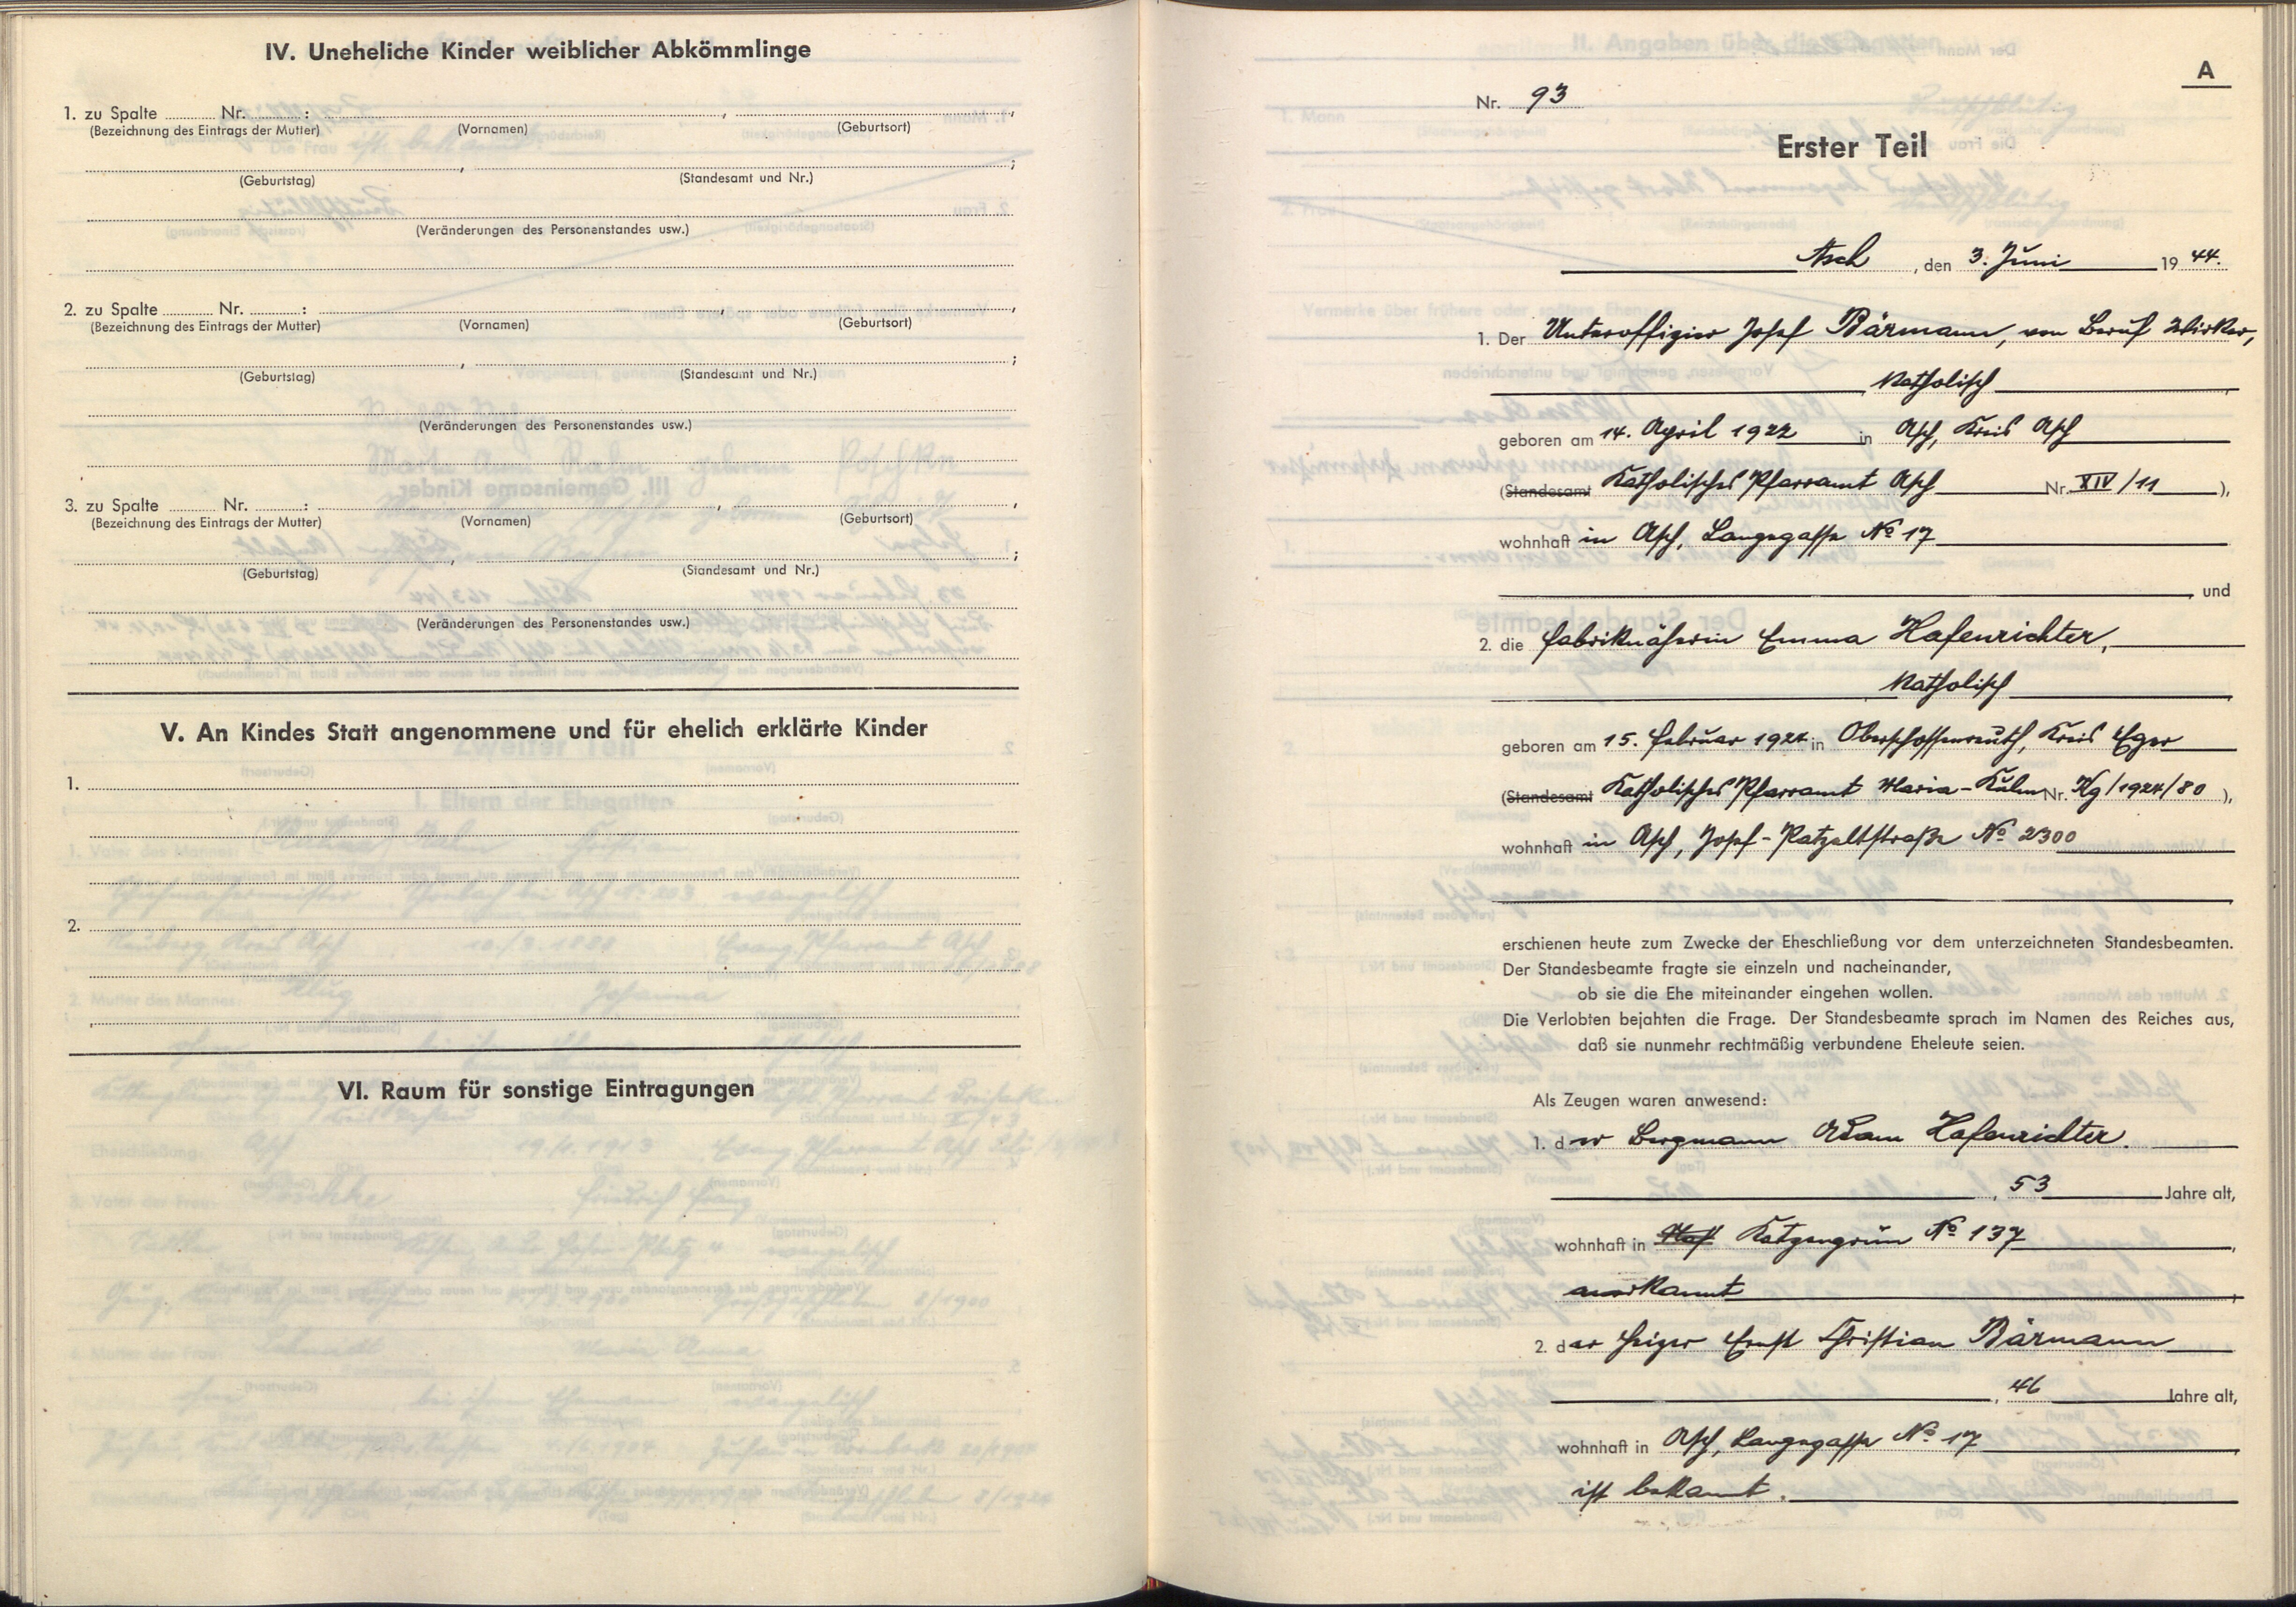 IV. Uneheliche Kinder weiblicher Abkömmlinge
1. zu Spalte ......... Nr. ......... : , ,
(Bezeichnung des Eintrags der Mutter) (Vornamen) (Geburtsort)
, ;
(Geburtstag) (Standesamt und Nr.)
(Veränderungen des Personenstandes usw.)
2. zu Spalte ......... Nr. ......... : , ,
(Bezeichnung des Eintrags der Mutter) (Vornamen) (Geburtsort)
, ;
(Geburtstag) (Standesamt und Nr.)
(Veränderungen des Personenstandes usw.)
3. zu Spalte ......... Nr. ......... : , ,
(Bezeichnung des Eintrags der Mutter) (Vornamen) (Geburtsort)
, ;
(Geburtstag) (Standesamt und Nr.)
(Veränderungen des Personenstandes usw.)
V. An Kindes Statt angenommene und für ehelich erklärte Kinder
1.
2.
VI. Raum für sonstige Eintragungen
A
Nr. 93
Erster Teil
Asch, den 3. Juni 1944.
1. Der Unteroffizier Josef Bärmann, von Beruf Wirker,
katholisch,
geboren am 14. April 1922 in Asch, Kreis Asch
(Standesamt Katholisches Pfarramt Asch Nr. XIV/11),
wohnhaft in Asch, Langegasse No 17
, und
2. die Fabriknäherin Emma Hafenrichter,
katholisch,
geboren am 15. Februar 1924 in Oberschossenreuth, Kreis Eger
(Standesamt Katholisches Pfarramt Maria-Kulm Nr. Kg/1924/80),
wohnhaft in Asch, Josef-Patzeltstraße No 2300
,
erschienen heute zum Zwecke der Eheschließung vor dem unterzeichneten Standesbeamten.
Der Standesbeamte fragte sie einzeln und nacheinander,
ob sie die Ehe miteinander eingehen wollen.
Die Verlobten bejahten die Frage. Der Standesbeamte sprach im Namen des Reiches aus,
daß sie nunmehr rechtmäßig verbundene Eheleute seien.
Als Zeugen waren anwesend:
1. der Bergmann Adam Hafenrichter.
, 53 Jahre alt,
wohnhaft in Katzengrün No 137,
anerkannt,
2. der Heizer Ernst Christian Bärmann
, 46 Jahre alt,
wohnhaft in Asch, Langegasse No 17,
ist bekannt.